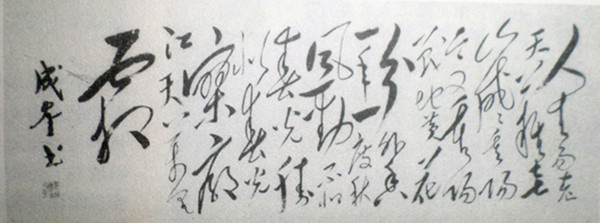 人生易老
天难老
岁岁重阳
今又重阳
战地黄花
分外香
一年一度秋
风劲不似
春光胜
似春光
寥廓
江天万里
霜
成 书